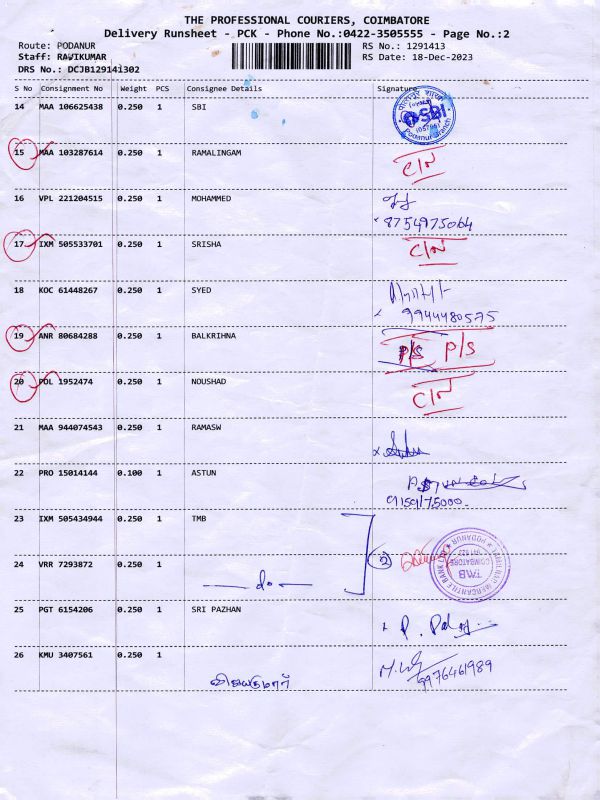 THE PROFESSIONAL COURIERS, COIMBATORE
Delivery Runsheet - PCK - Phone No.:0422-3505555 - Page No.:2
Route: PODANUR RS No.: 1291413
Staff: RAVIKUMAR RS Date: 18-Dec-2023
DRS No.: DCJB129141302
S No Consignment No Weight PCS Consignee Details Signature
14 MAA 106625438 0.250 1 SBI
SBI
Podanur Branch
15 MAA 103287614 0.250 1 RAMALINGAM C/N
16 VPL 221204515 0.250 1 MOHAMMED
8754975064
17 IXM 505533701 0.250 1 SRISHA C/N
18 KOC 61448267 0.250 1 SYED
9944480575
19 ANR 80684288 0.250 1 BALKRIHNA P/S P/S
20 PDL 1952474 0.250 1 NOUSHAD C/N
21 MAA 944074543 0.250 1 RAMASW
22 PRO 15014144 0.100 1 ASTUN
9159175000
23 IXM 505434944 0.250 1 TMB
24 VRR 7293872 0.250 1 do 2
TMB
COIMBATORE
PODANUR
25 PGT 6154206 0.250 1 SRI PAZHAN
26 KMU 3407561 0.250 1
விஜயகுமார்
9976461989